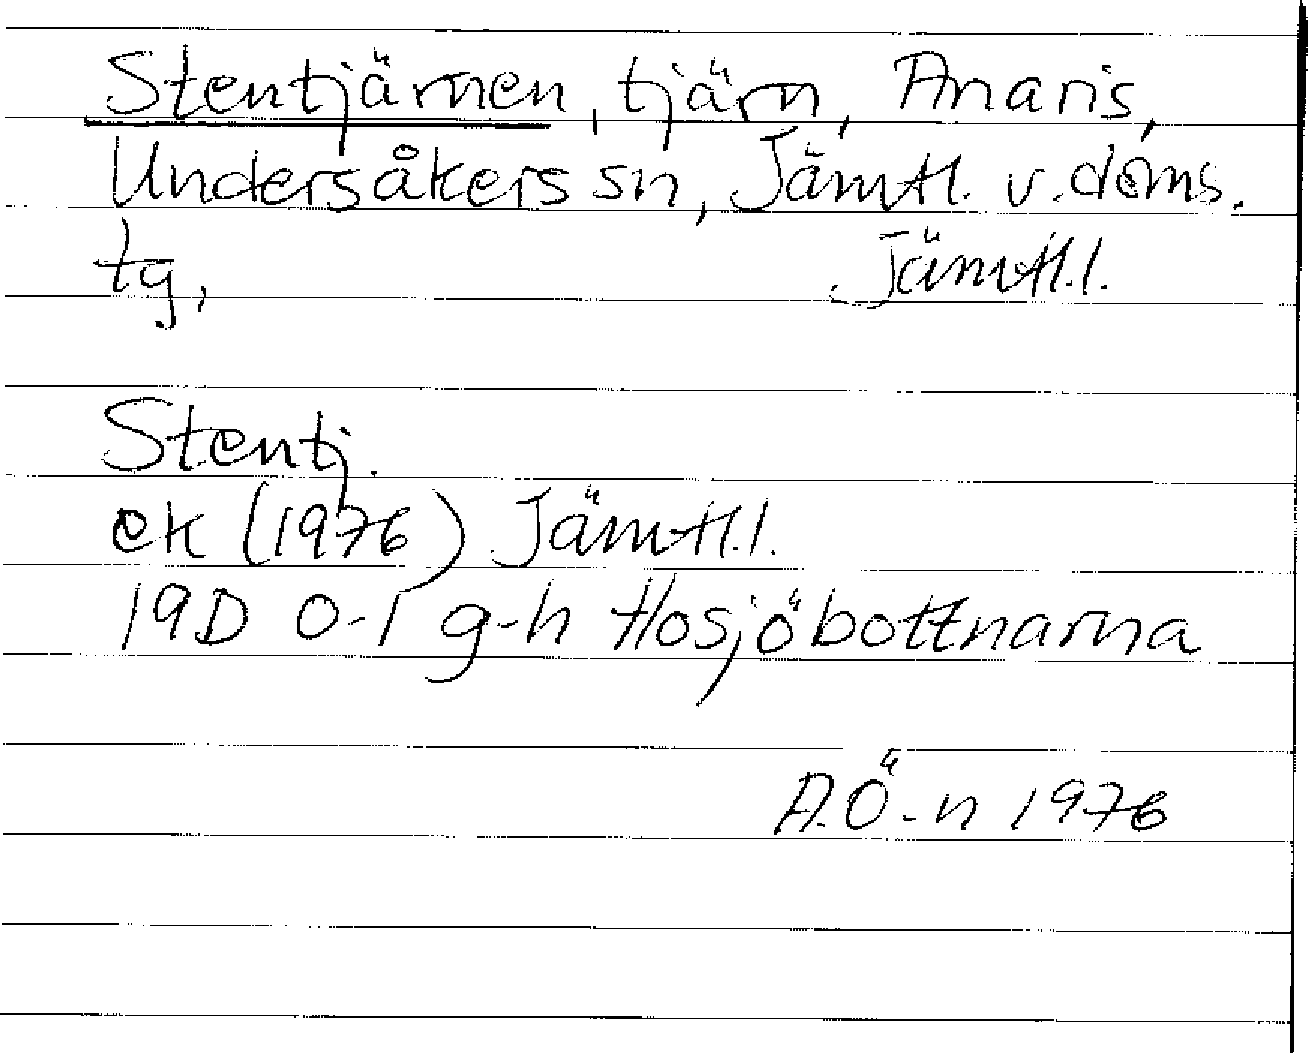 Stentjärnen, tjärn, Anaris,
Undersåkers sn, Jämtl. v. doms.
tg, Jämtl.l.
Stentj.
ek (1976) Jämtl.l.
19D 0-1 g-h Hosjöbottnarna
A.Ö-n 1976